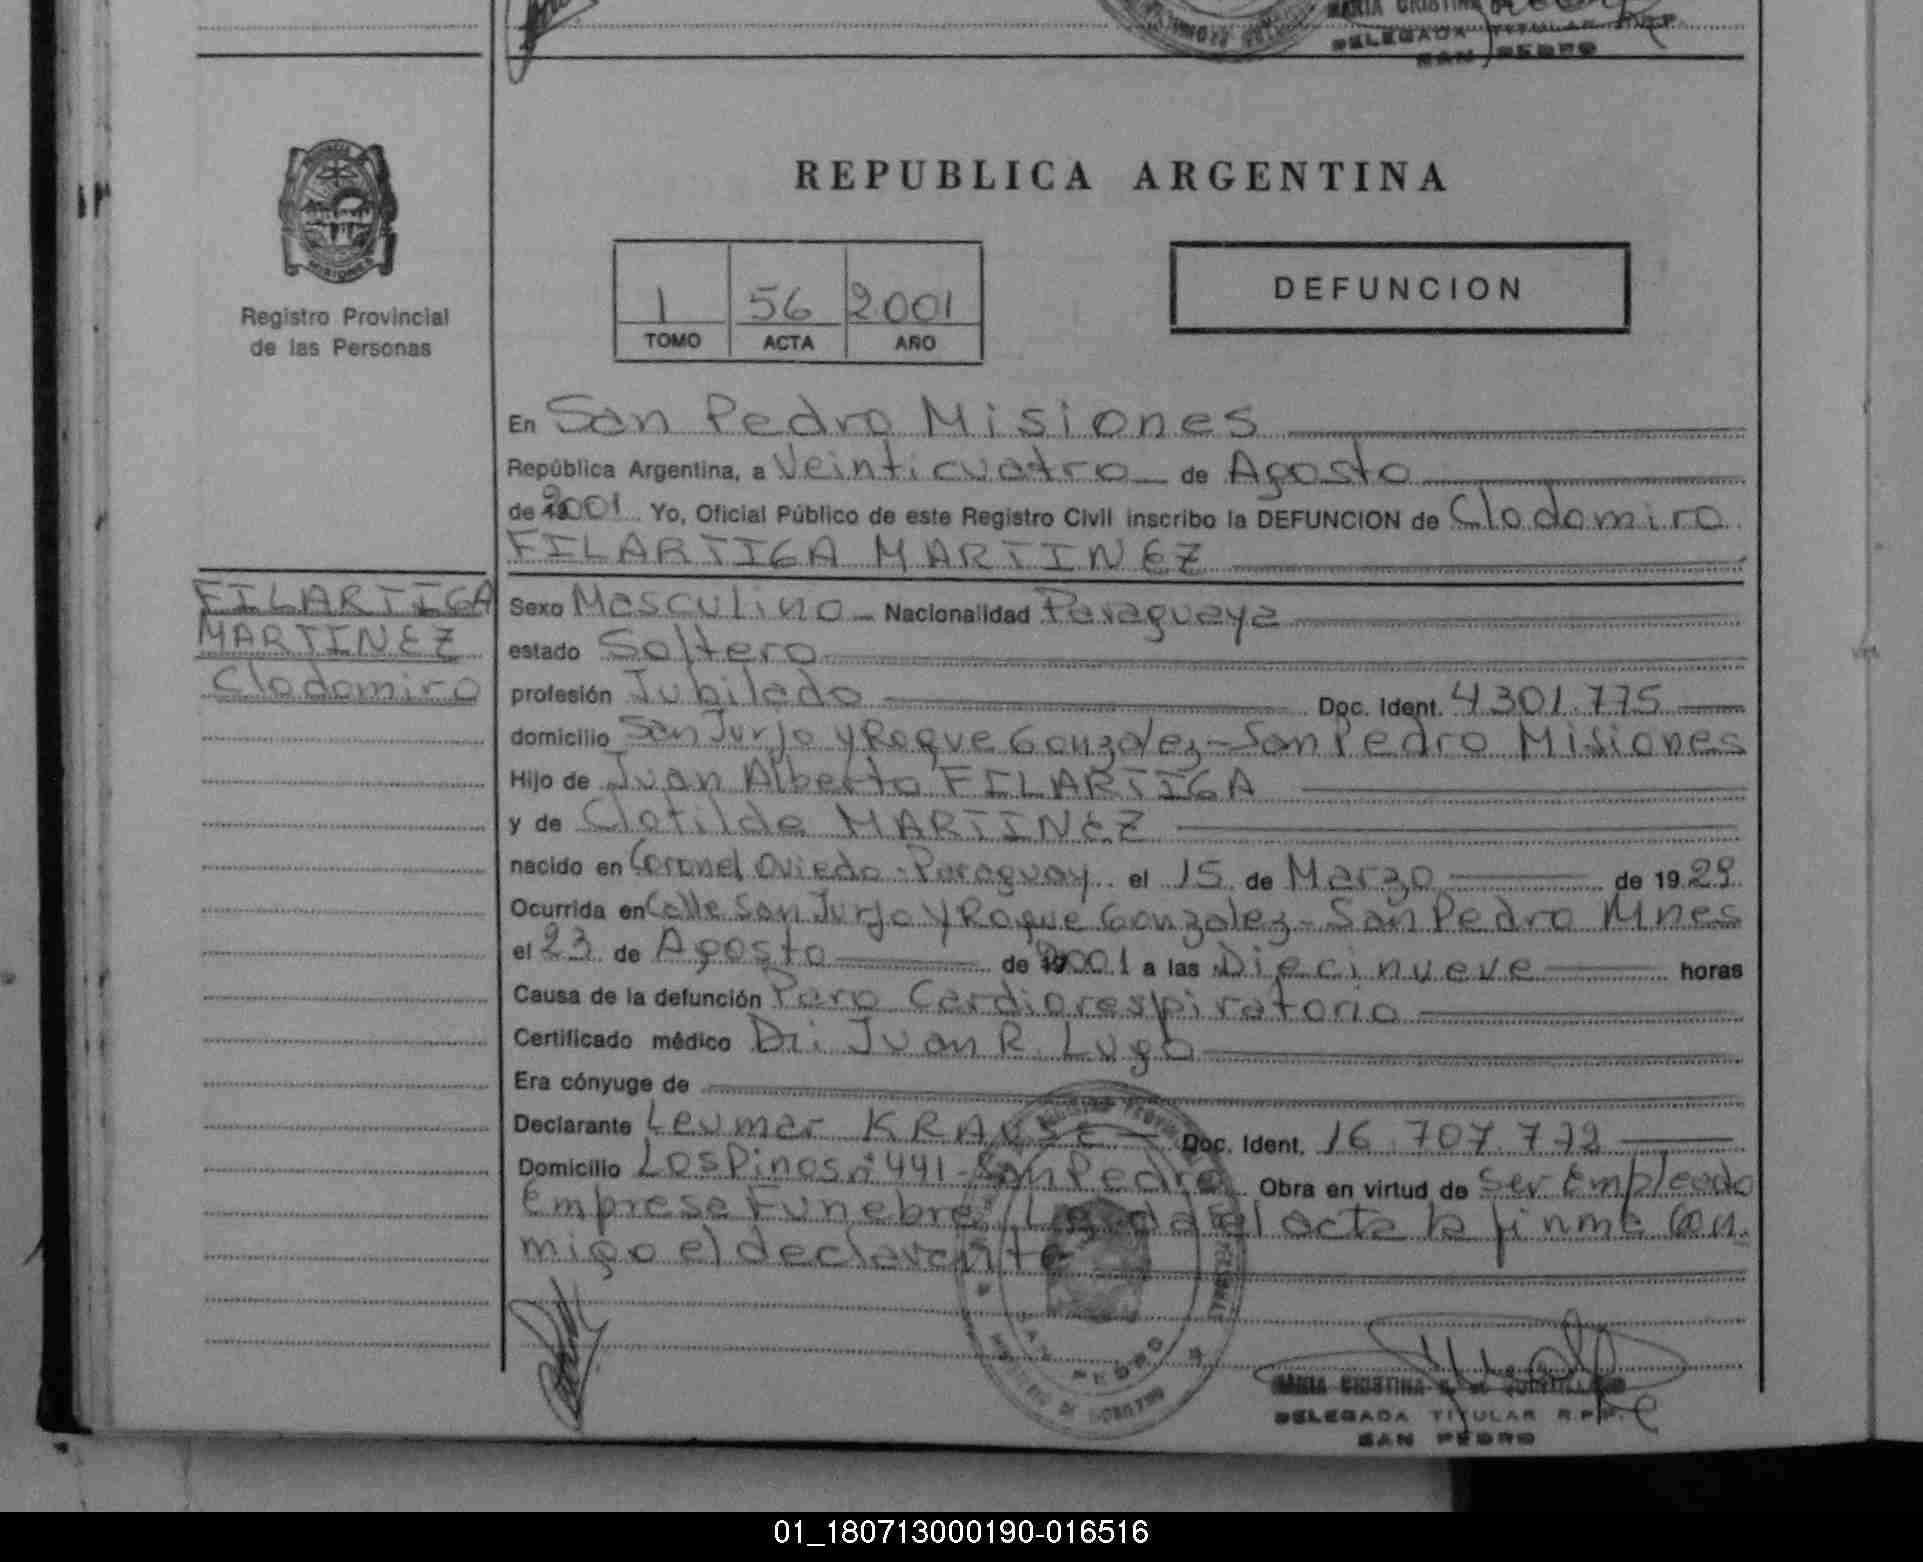 MARIA CRISTINA
DELEGADA TITULAR R.P.P.
SAN PEDRO
REPUBLICA ARGENTINA
PROVINCIA
MISIONES
Registro Provincial
de las Personas
1 56 2.001
TOMO ACTA AÑO
DEFUNCION
En San Pedro Misiones
República Argentina, a Veinticuatro de Agosto
de 2001 Yo, Oficial Público de este Registro Civil inscribo la DEFUNCION de Clodomiro
FILARTIGA MARTINEZ
FILARTIGA
MARTINEZ
Clodomiro
Sexo Masculino Nacionalidad Paraguaya
estado Soltero
profesión Jubilado Doc. Ident. 4301.775
domicilio San Jurjo y Roque Gonzalez - San Pedro Misiones
Hijo de Juan Alberto FILARTIGA
y de Clotilde MARTINEZ
nacido en Coronel Oviedo - Paraguay el 15 de Marzo de 1929
Ocurrida en Calle San Jurjo y Roque Gonzalez - San Pedro Mnes
el 23 de Agosto de 2001 a las Diecinueve horas
Causa de la defunción Paro Cardiorespiratorio
Certificado médico Dr. Juan R. Lugo
Era cónyuge de
Declarante Leumar KRAUSE Doc. Ident. 16.707.772
Domicilio Los Pinos nº 441 - San Pedro Obra en virtud de Ser Empleado
Emprese Funebre Leida el acta la firma Con
migo el declarante
SAN PEDRO
MARIA CRISTINA
DELEGADA TITULAR R.P.P.
SAN PEDRO
01_180713000190-016516